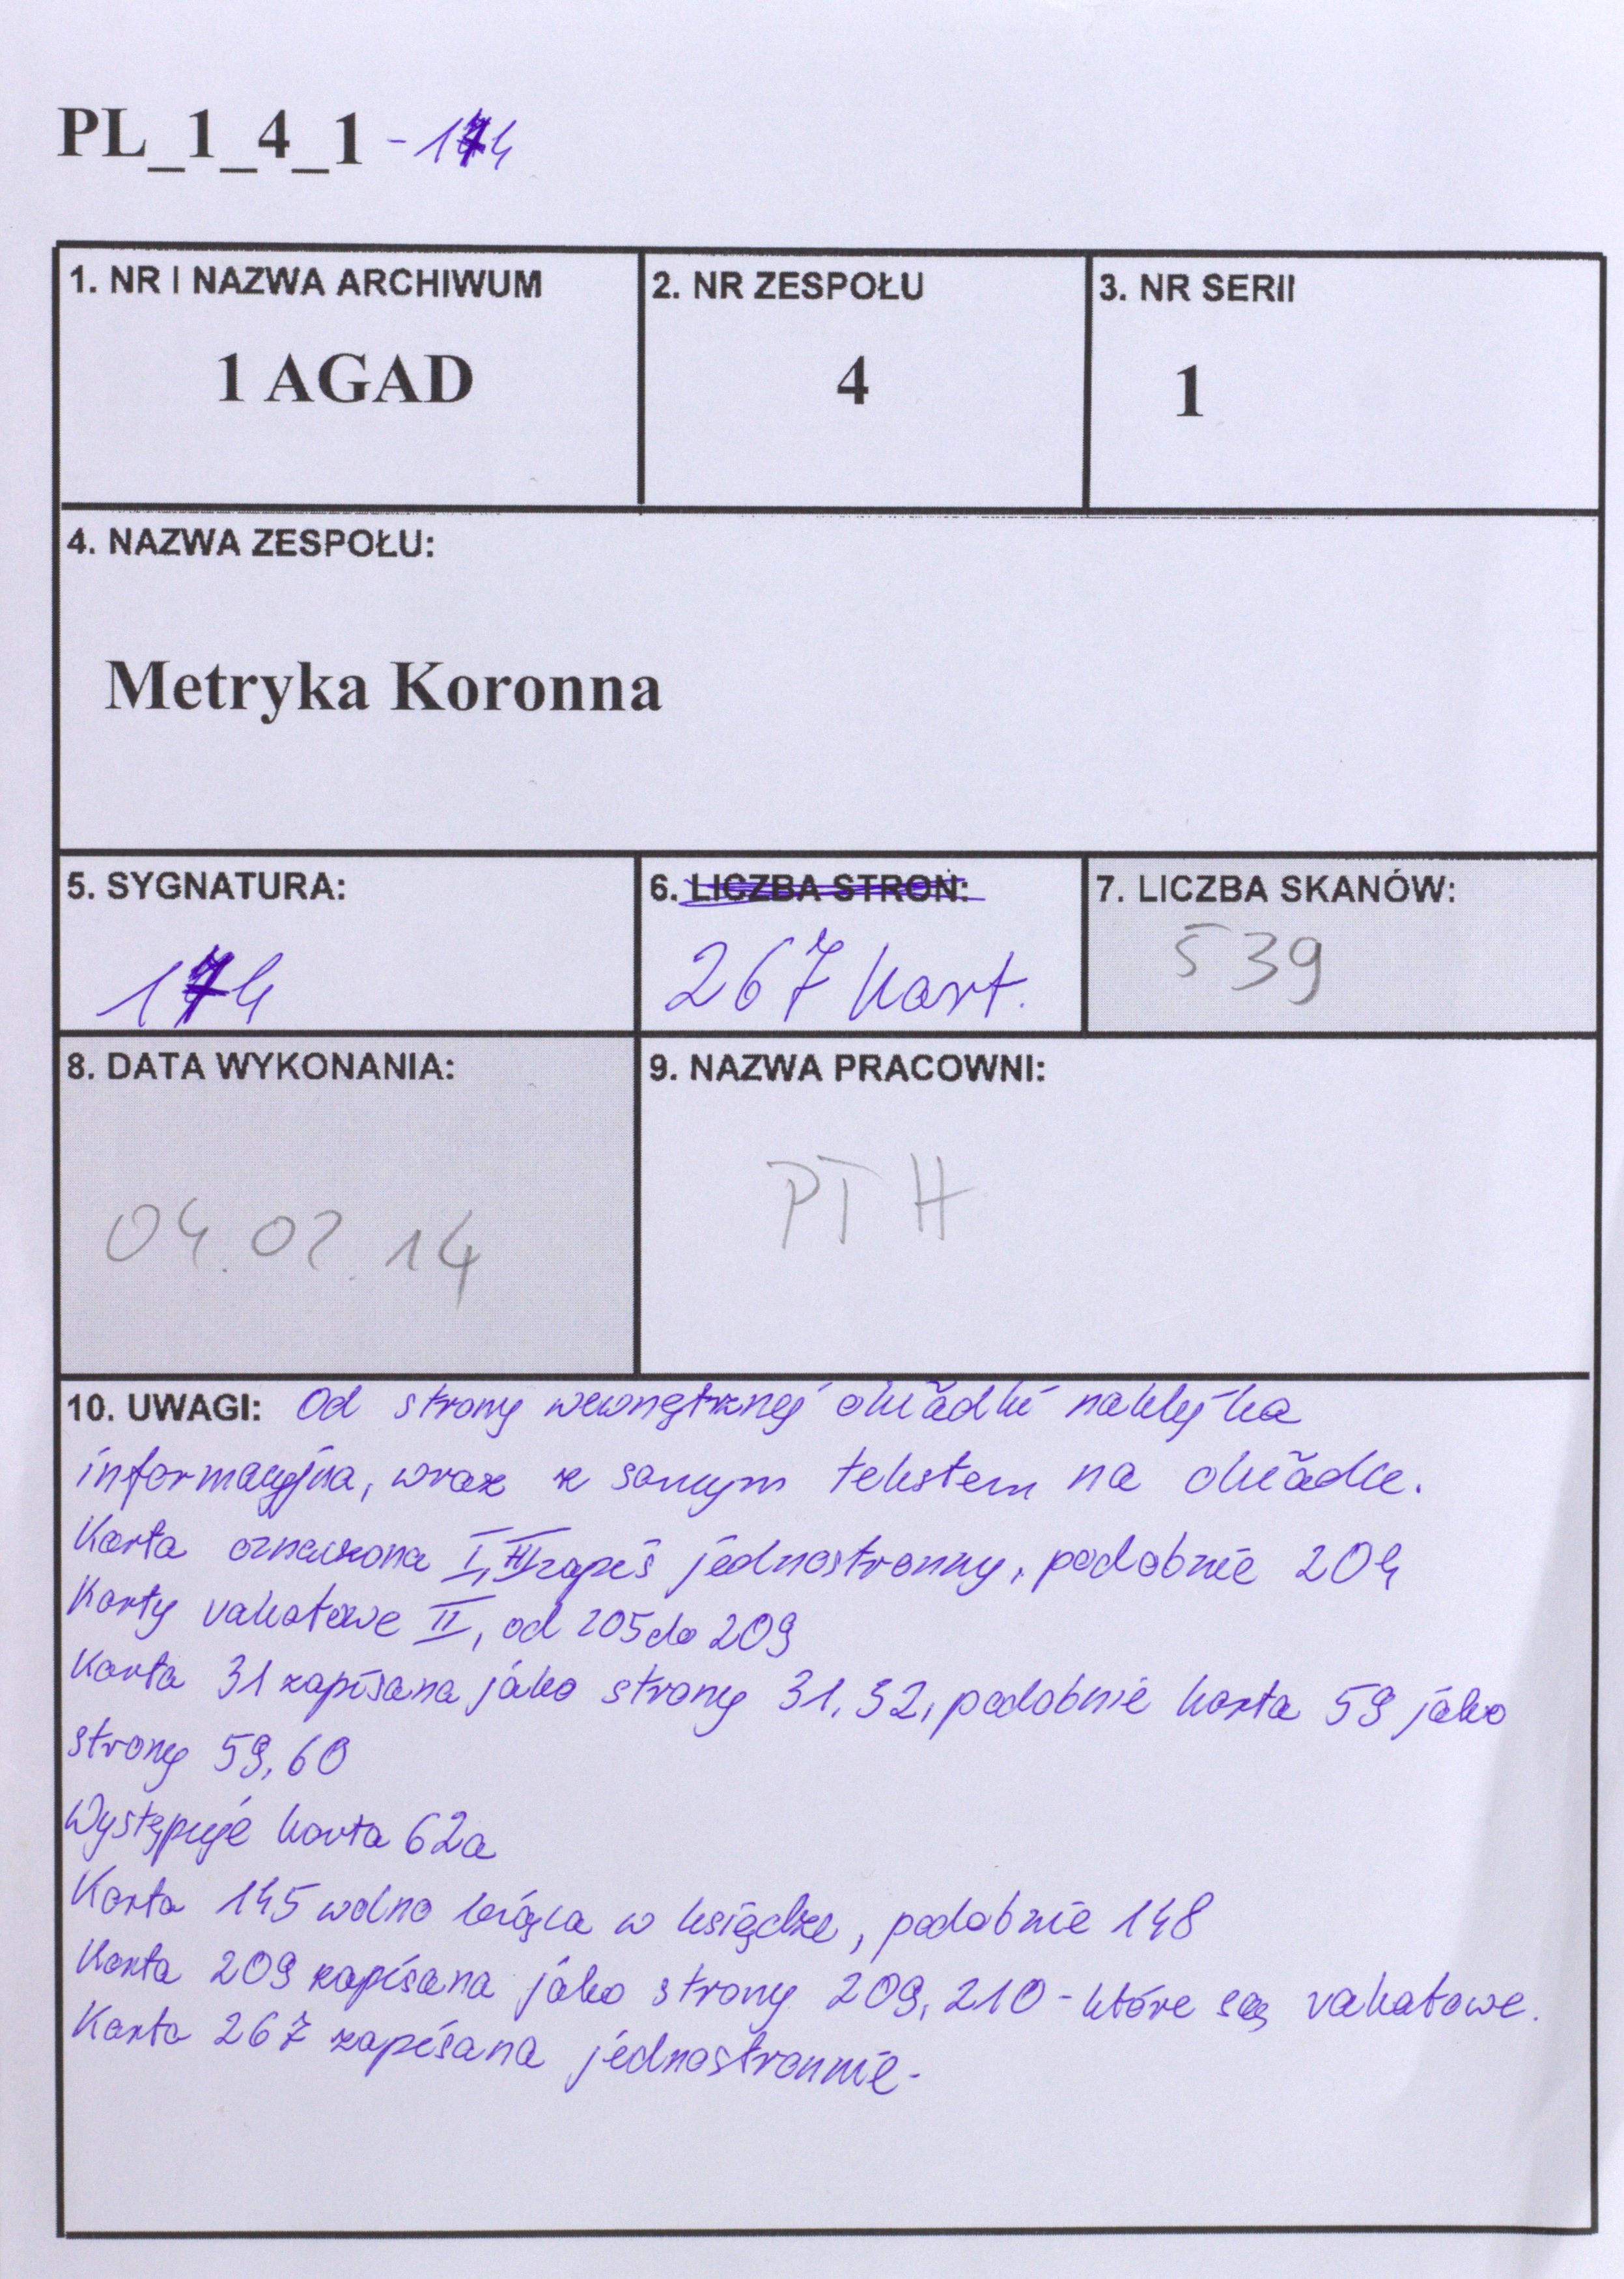 PL_1_4_1 - 174
1. NR I NAZWA ARCHIWUM
1 AGAD
2. NR ZESPOŁU
4
3. NR SERII
1
4. NAZWA ZESPOŁU:
Metryka Koronna
5. SYGNATURA:
174
6. LICZBA STRON:
267 kart.
7. LICZBA SKANÓW:
539
8. DATA WYKONANIA:
04.02.14
9. NAZWA PRACOWNI:
PTH
10. UWAGI: Od strony wewnętrznej okładki naklejka
informacyjna, wraz z samym tekstem na okładce.
Karta oznaczona I, III zapis jednostronny, podobnie 204
Karty vakatowe II, od 205 do 209
Karta 31 zapisana jako strony 31, 32, podobnie karta 59 jako
strony 59, 60
Występuje karta 62a
Karta 145 wolno leżąca w księdze, podobnie 148
Karta 209 zapisana jako strony 209, 210 - które są vakatowe.
Karta 267 zapisana jednostronnie.